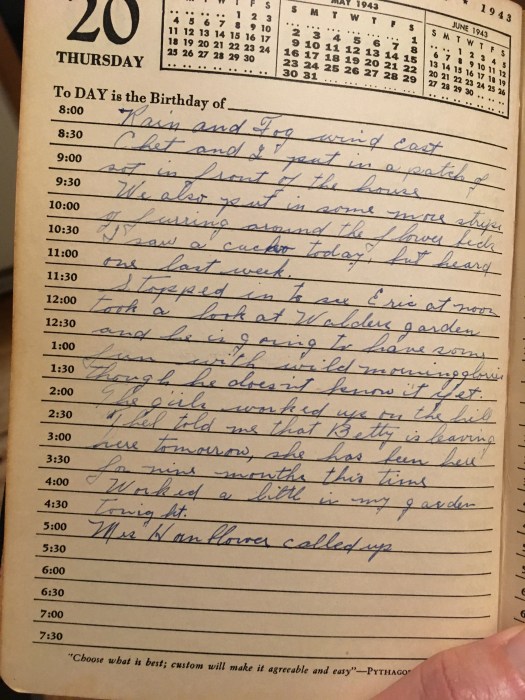 20
THURSDAY
1943
S
1 2 3
4 5 6 7 8 9 10
11 12 13 14 15 16 17
18 19 20 21 22 23 24
25 26 27 28 29 30
MAY 1943
S M T W T F S
1
2 3 4 5 6 7 8
9 10 11 12 13 14 15
16 17 18 19 20 21 22
23 24 25 26 27 28 29
30 31
JUNE 1943
S M T W T F S
1 2 3 4 5
6 7 8 9 10 11 12
13 14 15 16 17 18 19
20 21 22 23 24 25 26
27 28 29 30
To DAY is the Birthday of
8:00 Rain and Fog wind East
8:30 Chet and I put in a patch of
9:00 sot in front of the house
9:30 We also put in some more strips
10:00 of furring around the flower beds
10:30 I saw a cuckoo today, but heard
11:00 one last week.
11:30 Stopped in to see Eric at noon
12:00 took a look at Walders garden
12:30 and he is going to have some
1:00 fun with wild morningglories
1:30 though he doesnt know it yet.
2:00 The girls worked up on the hill
2:30 Thel told me that Betty is leaving
3:00 here tomorrow, she has been here
3:30 for nine months this time
4:00 Worked a little in my garden
4:30 tonight.
5:00 Mrs Hanflower called up
5:30
6:00
6:30
7:00
7:30
"Choose what is best; custom will make it agreeable and easy"—PYTHAGO